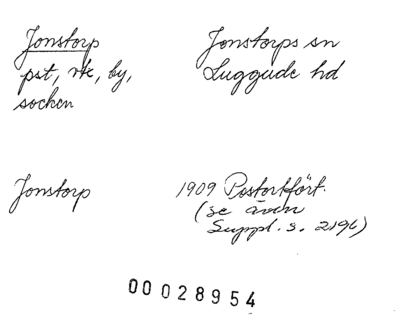 Jonstorp
Jonstorps sn
pst, vk, by,
Luggude hd
socken
Jonstorp
1909 Postortfört.
(se även
Suppl. s. 2196)
00028954